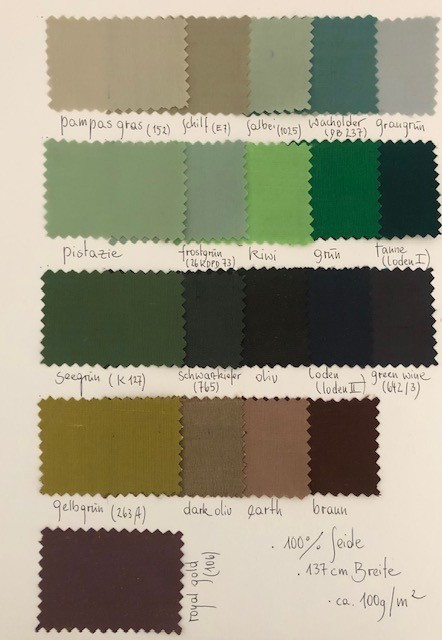 pampasgras (152) schilf (E7) Salbei (1025) Wacholder (DB 237) graugrün
pistazie frostgrün (26KDPD 73) kiwi grün tanne (loden I)
seegrün (K 127) schwarzkiefer (765) oliv loden (loden II) green wine (642/3)
gelbgrün (263A) dark oliv earth braun
royal gold (106)
. 100% Seide
. 137cm Breite
. ca. 100g/m²